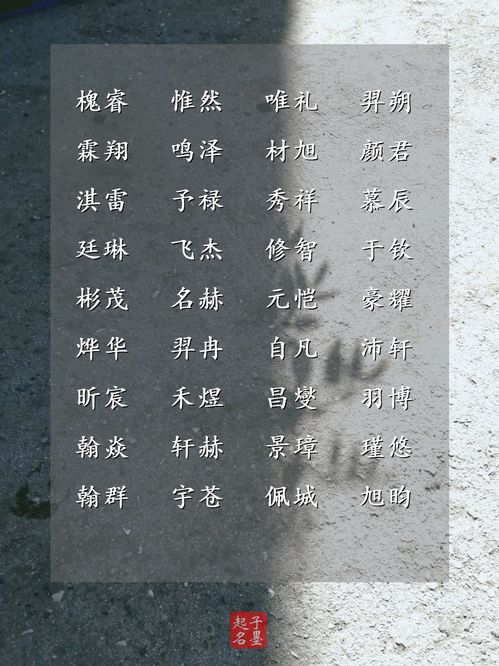 槐睿 惟然 唯礼 羿朔
霖翔 鸣泽 材旭 颜君
淇雷 予禄 秀祥 慕辰
廷琳 飞杰 修智 于钦
彬茂 名赫 元恺 豪耀
烨华 羿冉 自凡 沛轩
昕宸 禾煜 昌燮 羽博
翰焱 轩赫 景璋 瑾悠
翰群 宇苍 佩城 旭昀
子墨
起名